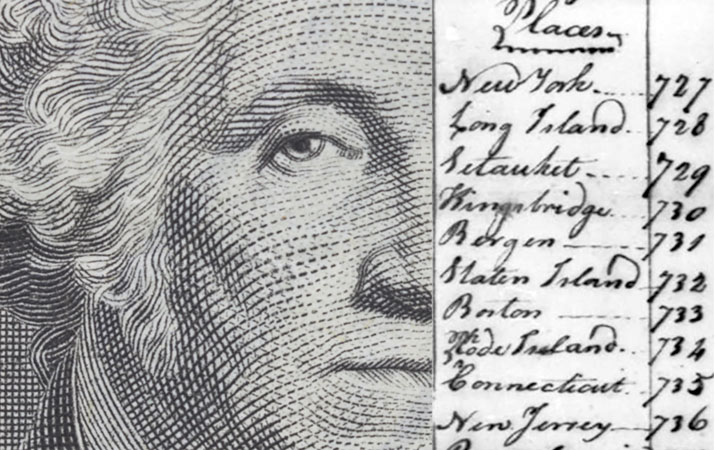 Places
New York 727
Long Island 728
Setauket 729
Kingsbridge 730
Bergen 731
Staten Island 732
Boston 733
Rode Island 734
Connecticut 735
New Jersey 736